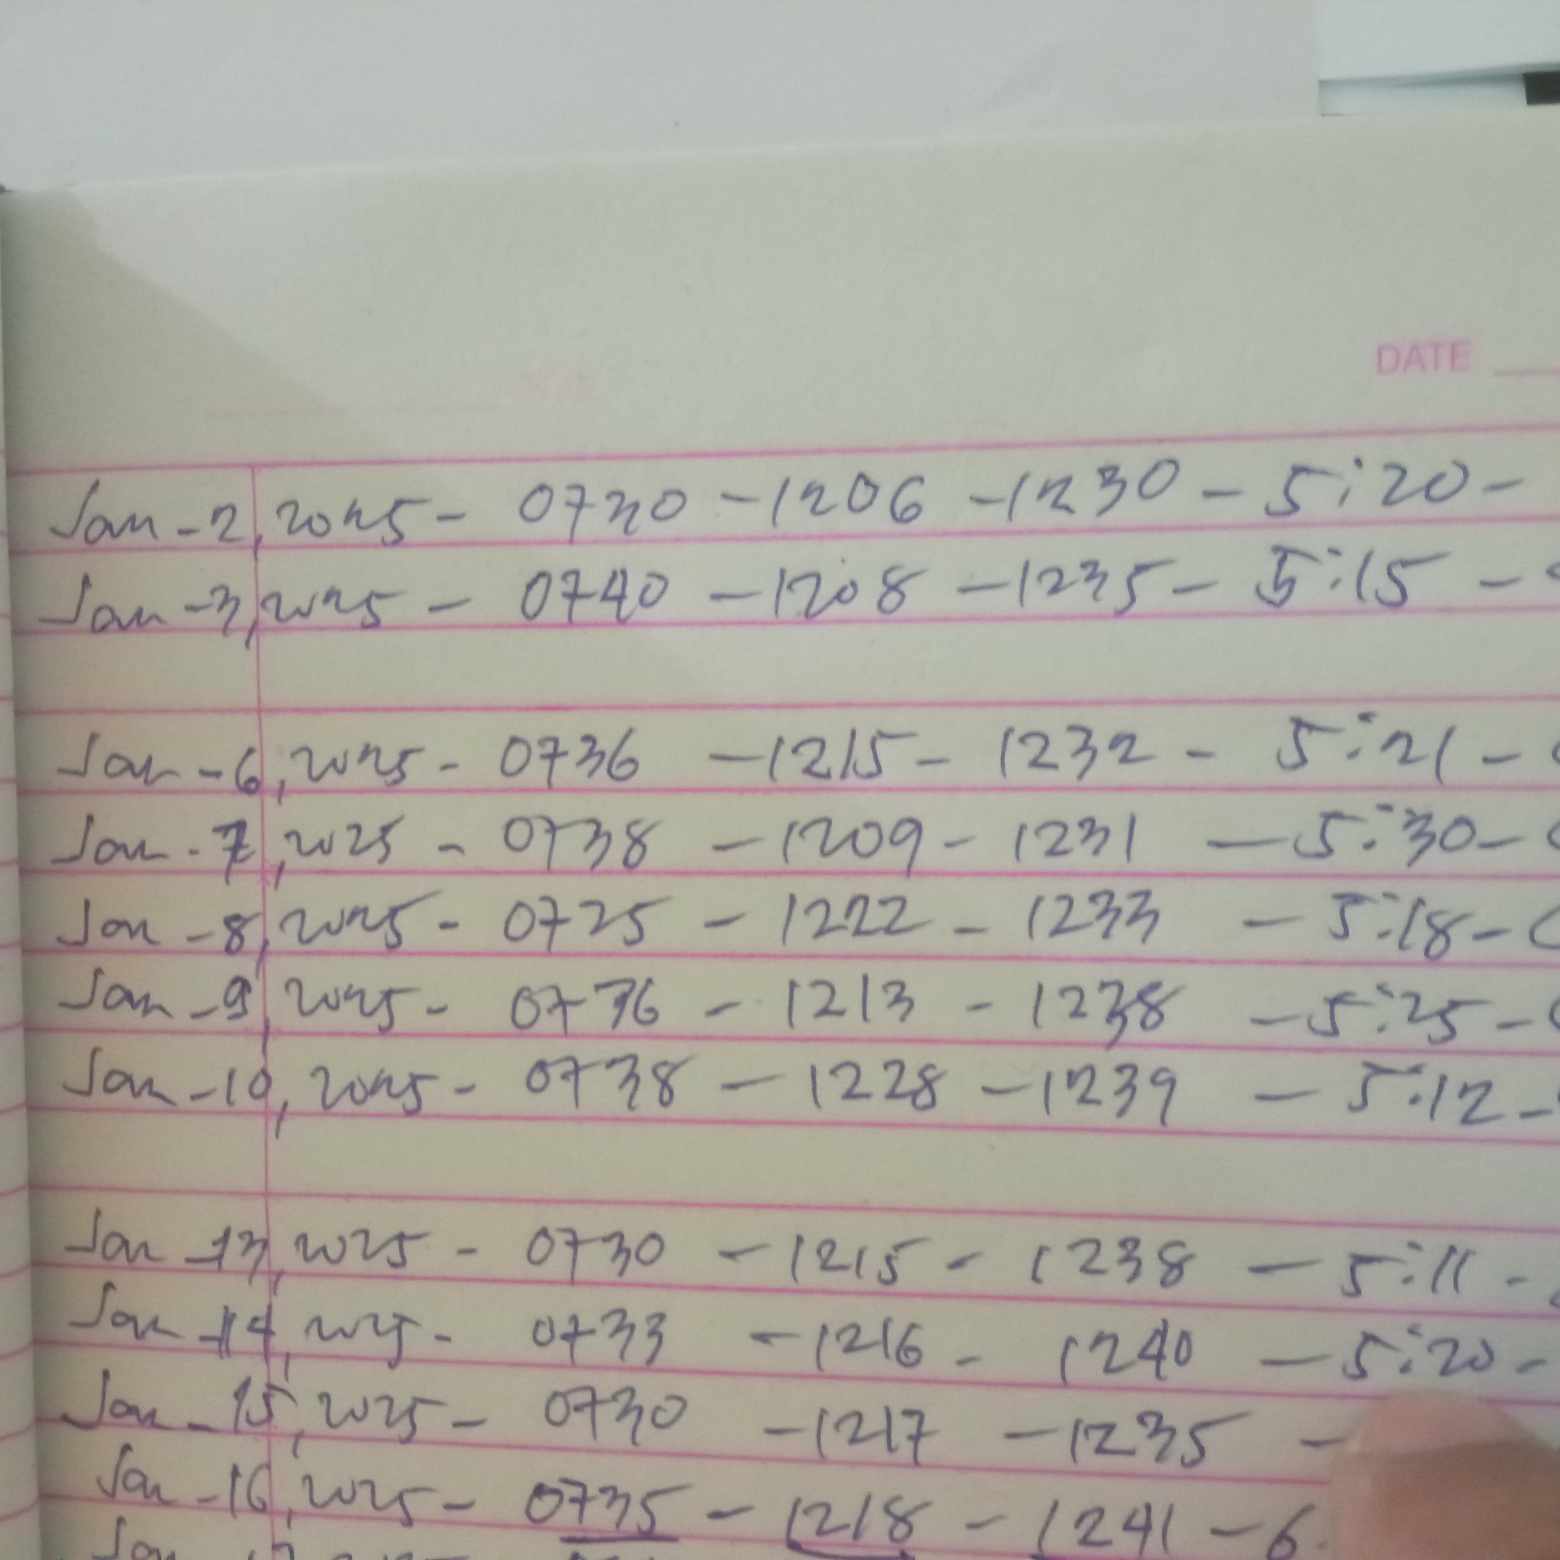 DATE
Jan - 2, 2025 - 0730 - 1206 - 1230 - 5:20 -
Jan - 3, 2025 - 0740 - 1208 - 1235 - 5:15 -
Jan - 6, 2025 - 0736 - 1215 - 1232 - 5:21 -
Jan - 7, 2025 - 0738 - 1209 - 1231 - 5:30 -
Jan - 8, 2025 - 0725 - 1222 - 1233 - 5:18 -
Jan - 9, 2025 - 0736 - 1213 - 1238 - 5:25 -
Jan - 10, 2025 - 0738 - 1228 - 1239 - 5:12 -
Jan - 13, 2025 - 0730 - 1215 - 1238 - 5:11 -
Jan - 14, 2025 - 0733 - 1216 - 1240 - 5:20 -
Jan - 15, 2025 - 0730 - 1217 - 1235 -
Jan - 16, 2025 - 0735 - 1218 - 1241 - 6